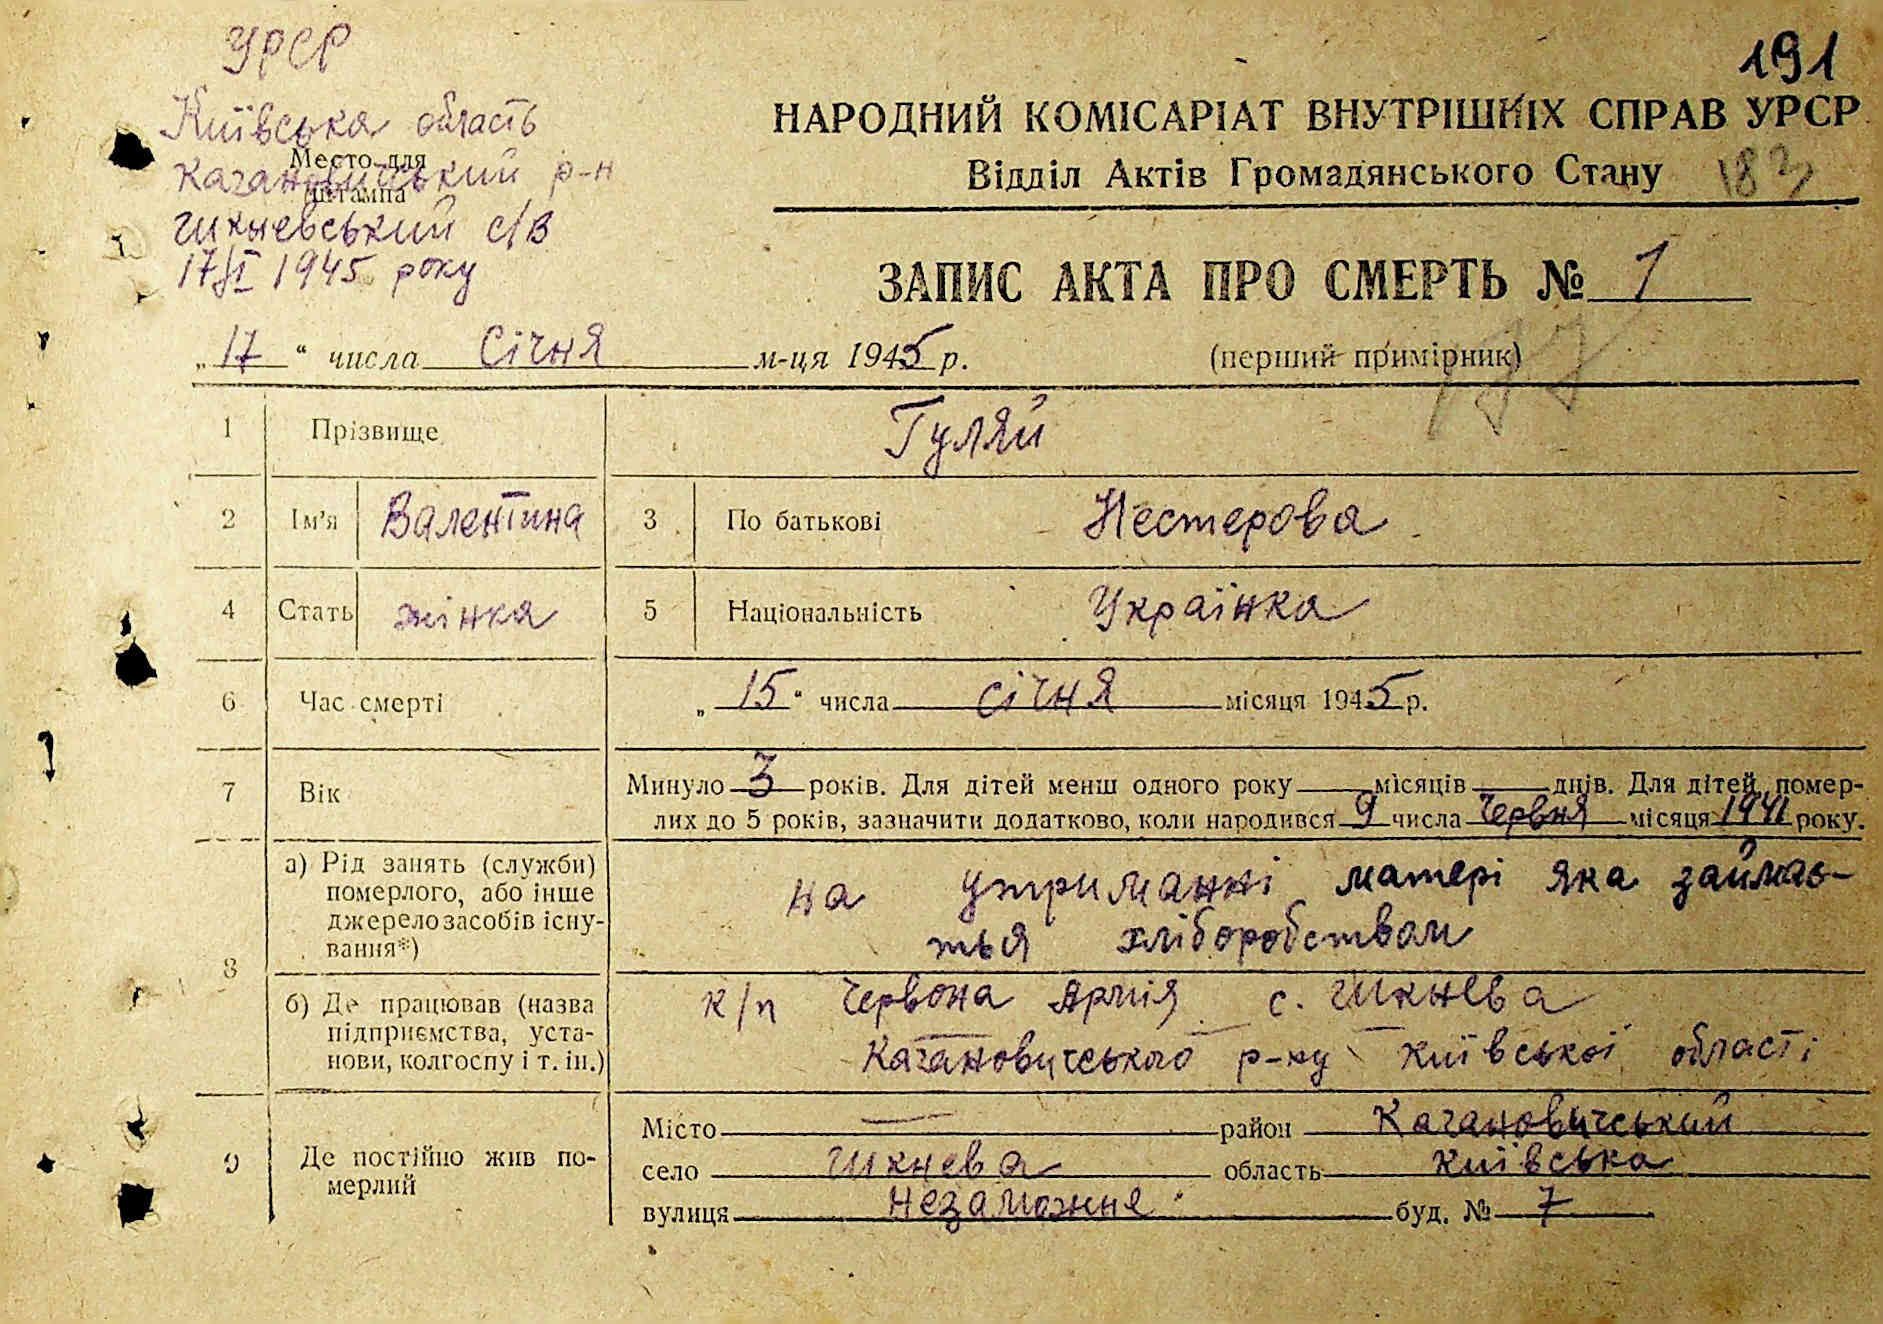 УРСР
191
Київська область
Место для
штампа
Кагановичський р-н
Шкневський с/в
17/I 1945 року
НАРОДНИЙ КОМІСАРІАТ ВНУТРІШНІХ СПРАВ УРСР
Відділ Актів Громадянського Стану
183
ЗАПИС АКТА ПРО СМЕРТЬ № 1
„17“ числа Січня м-ця 1945 р.
(перший примірник)
177
1 Прізвище Гуляй
2 Ім'я Валентина 3 По батькові Нестерова
4 Стать жінка 5 Національність Українка
6 Час смерті „15“ числа січня місяця 1945 р.
7 Вік Минуло 3 років. Для дітей менш одного року місяців днів. Для дітей, помер-
лих до 5 років, зазначити додатково, коли народився 9 числа Червня місяця 1941 року.
8 а) Рід занять (служби)
померлого, або інше
джерело засобів існу-
вання*)
на утриманні матері яка займає-
ться хліборобством
б) Де працював (назва
підприємства, уста-
нови, колгоспу і т. ін.)
к/п Червона Армія с. Шкнева
Кагановичського р-ну Київської області
9 Де постійно жив по-
мерлий
Місто — район Кагановичський
село Шкнева область Київська
вулиця Незаможня буд. № 7